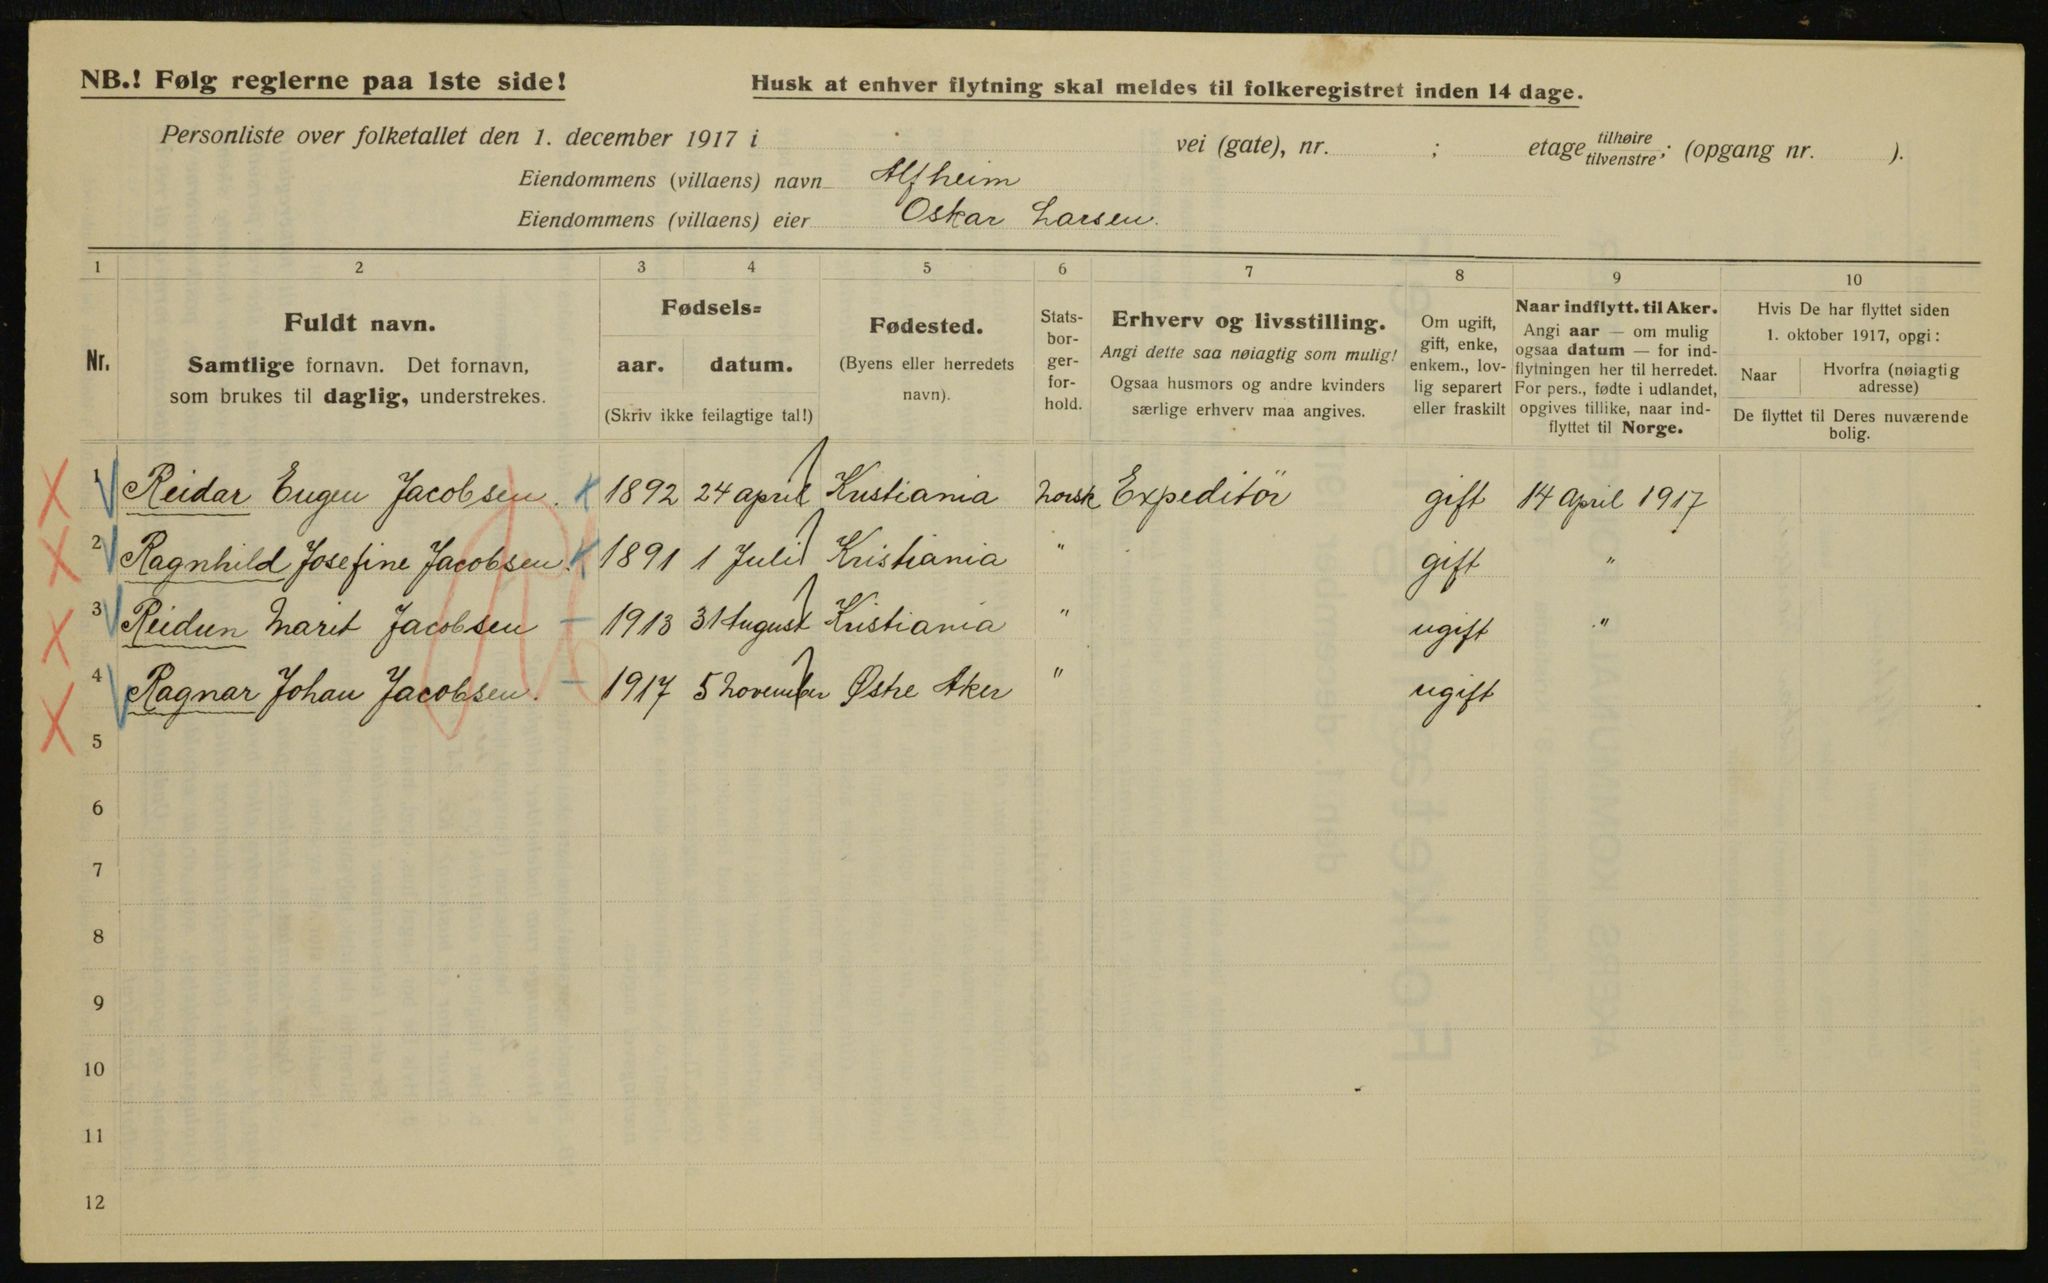 NB.! Følg reglerne paa 1ste side!
Husk at enhver flytning skal meldes til folkeregistret inden 14 dage.
Personliste over folketallet den 1. december 1917 i vei (gate), nr. ; etage tilhøire tilvenstre; (opgang nr. ).
Eiendommens (villaens) navn Alfheim
Eiendommens (villaens) eier Oskar Larsen.
1 2 3 4 5 6 7 8 9 10
Nr.
Fuldt navn.
Samtlige fornavn. Det fornavn,
som brukes til daglig, understrekes.
Fødsels=
aar. datum.
(Skriv ikke feilagtige tal!)
Fødested.
(Byens eller herredets
navn).
Stats-
bor-
ger-
for-
hold.
Erhverv og livsstilling.
Angi dette saa nøiagtig som mulig!
Ogsaa husmors og andre kvinders
særlige erhverv maa angives.
Om ugift,
gift, enke,
enkem., lov-
lig separert
eller fraskilt
Naar indflytt. til Aker.
Angi aar — om mulig
ogsaa datum — for ind-
flytningen her til herredet.
For pers., fødte i udlandet,
opgives tillike, naar ind-
flyttet til Norge.
Hvis De har flyttet siden
1. oktober 1917, opgi:
Naar
Hvorfra (nøiagtig
adresse)
De flyttet til Deres nuværende
bolig.
1 Reidar Eugen Jacobsen. 1892 24 april Kristiania norsk Expeditör gift 14 april 1917
2 Ragnhild Josefine Jacobsen. 1891 1 Juli Kristiania " gift "
3 Reidun Marit Jacobsen 1913 31 August Kristiania " ugift "
4 Ragnar Johan Jacobsen. 1917 5 November Østre Aker " ugift
5
6
7
8
9
10
11
12